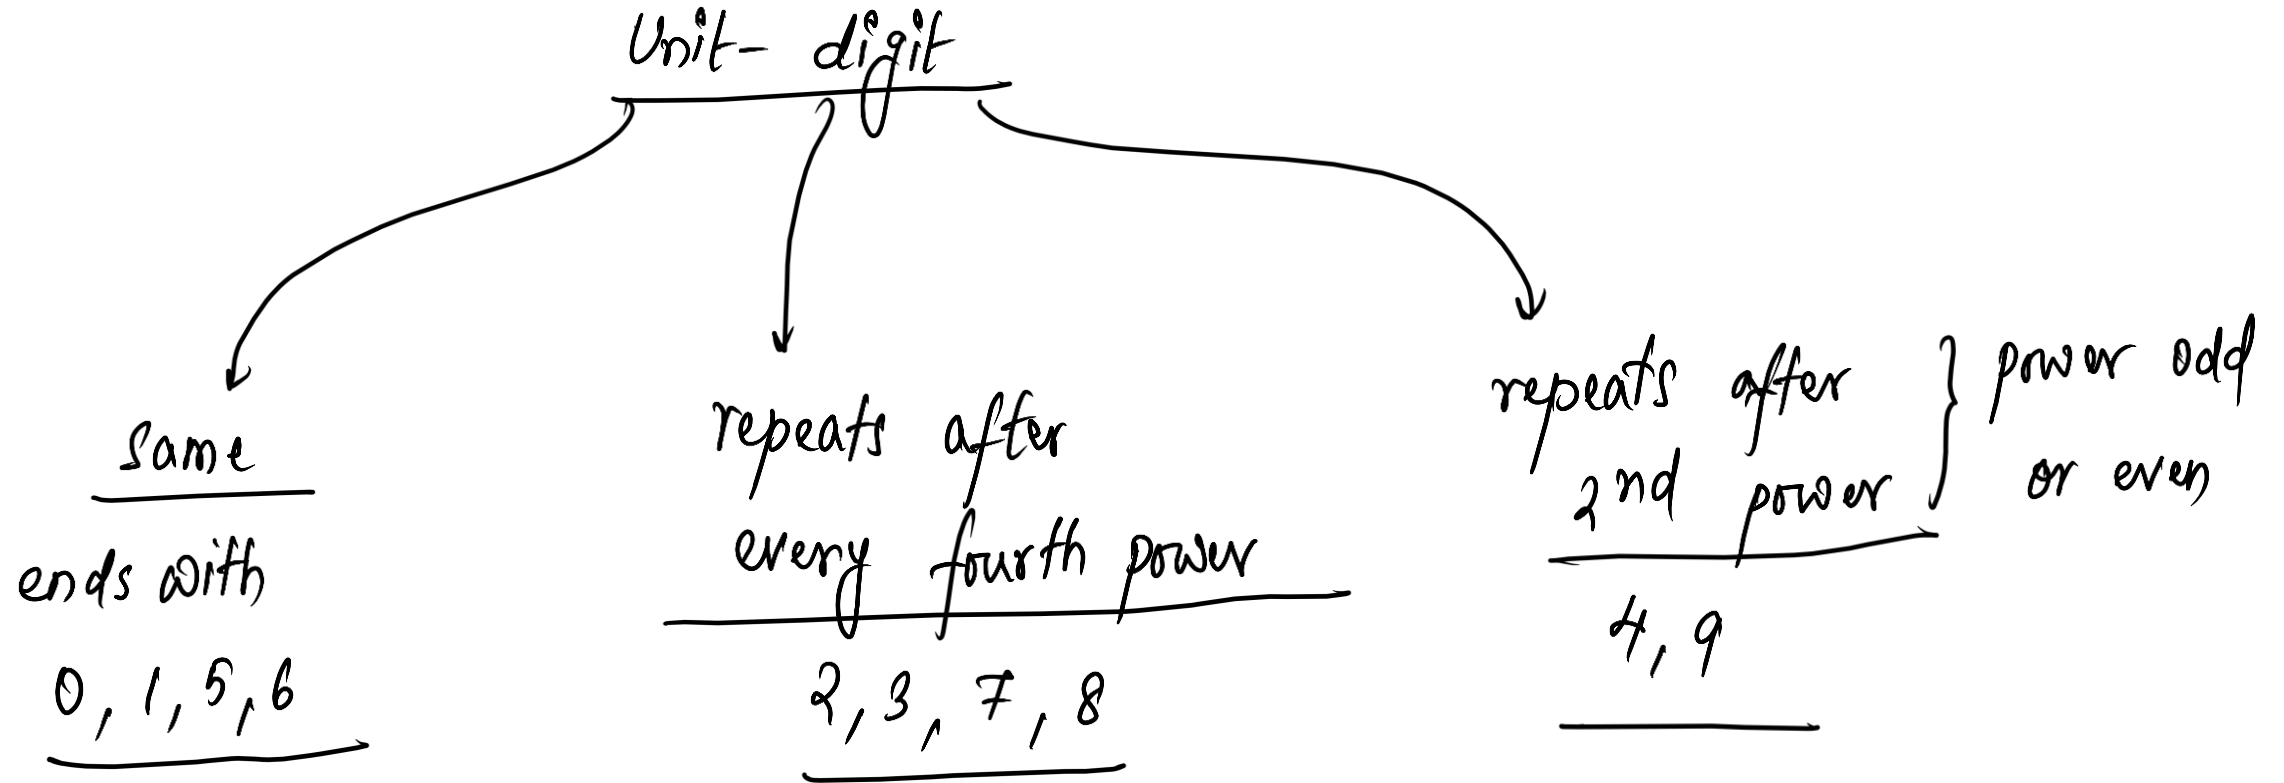 Unit- digit
same
ends with
0, 1, 5, 6
repeats after
every fourth power
2, 3, 7, 8
repeats after
2nd power
4, 9
power odd
or even